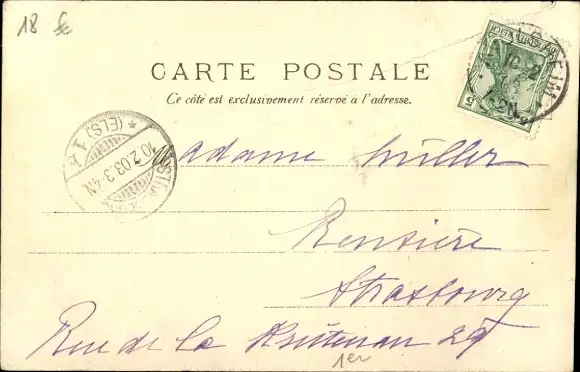 18
CARTE POSTALE
Ce côté est exclusivement réservé à l'adresse.
DEUTSCHES REICH
5
(ELS.) 1 h
10.2.03.3-4N.
Madame Müller
Rentière
Strasbourg
Rue de la Krutenau 29
1er